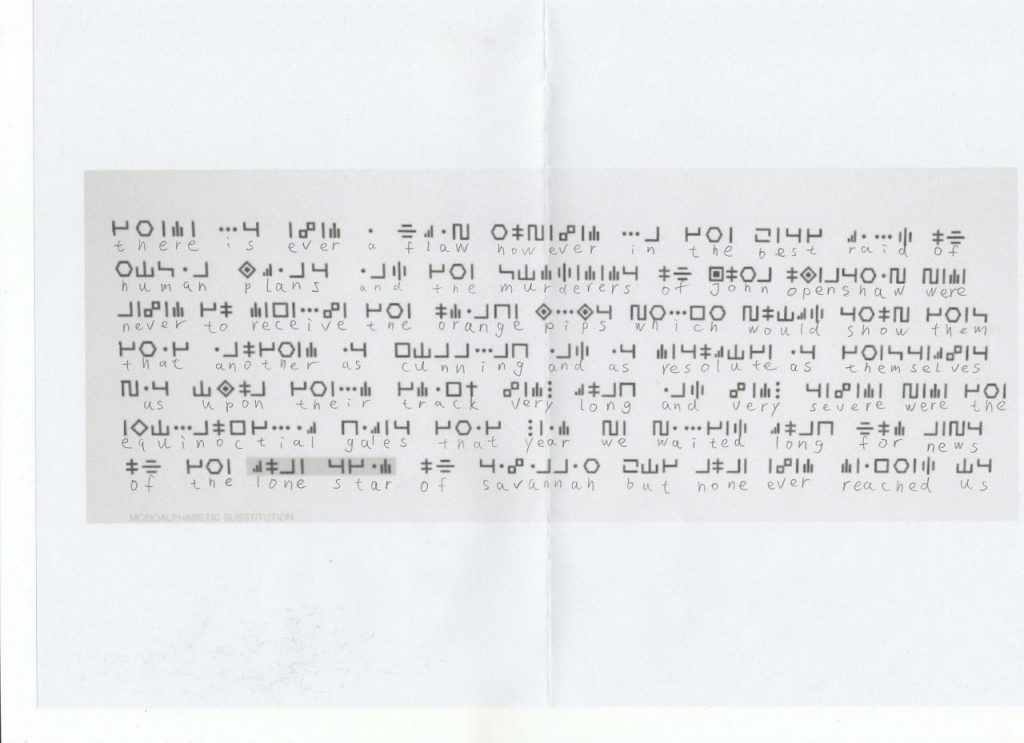 there is ever a flaw however in the best raid of
human plans and the murderers of john openshaw were
never to receive the orange pips which would show them
that another as cunning and as resolute as themselves
as upon their track very long and very severe were the
equinoctial gales that year we waited long for news
of the lone star of savannah but none ever reached us
MONOALPHABETIC SUBSTITUTION